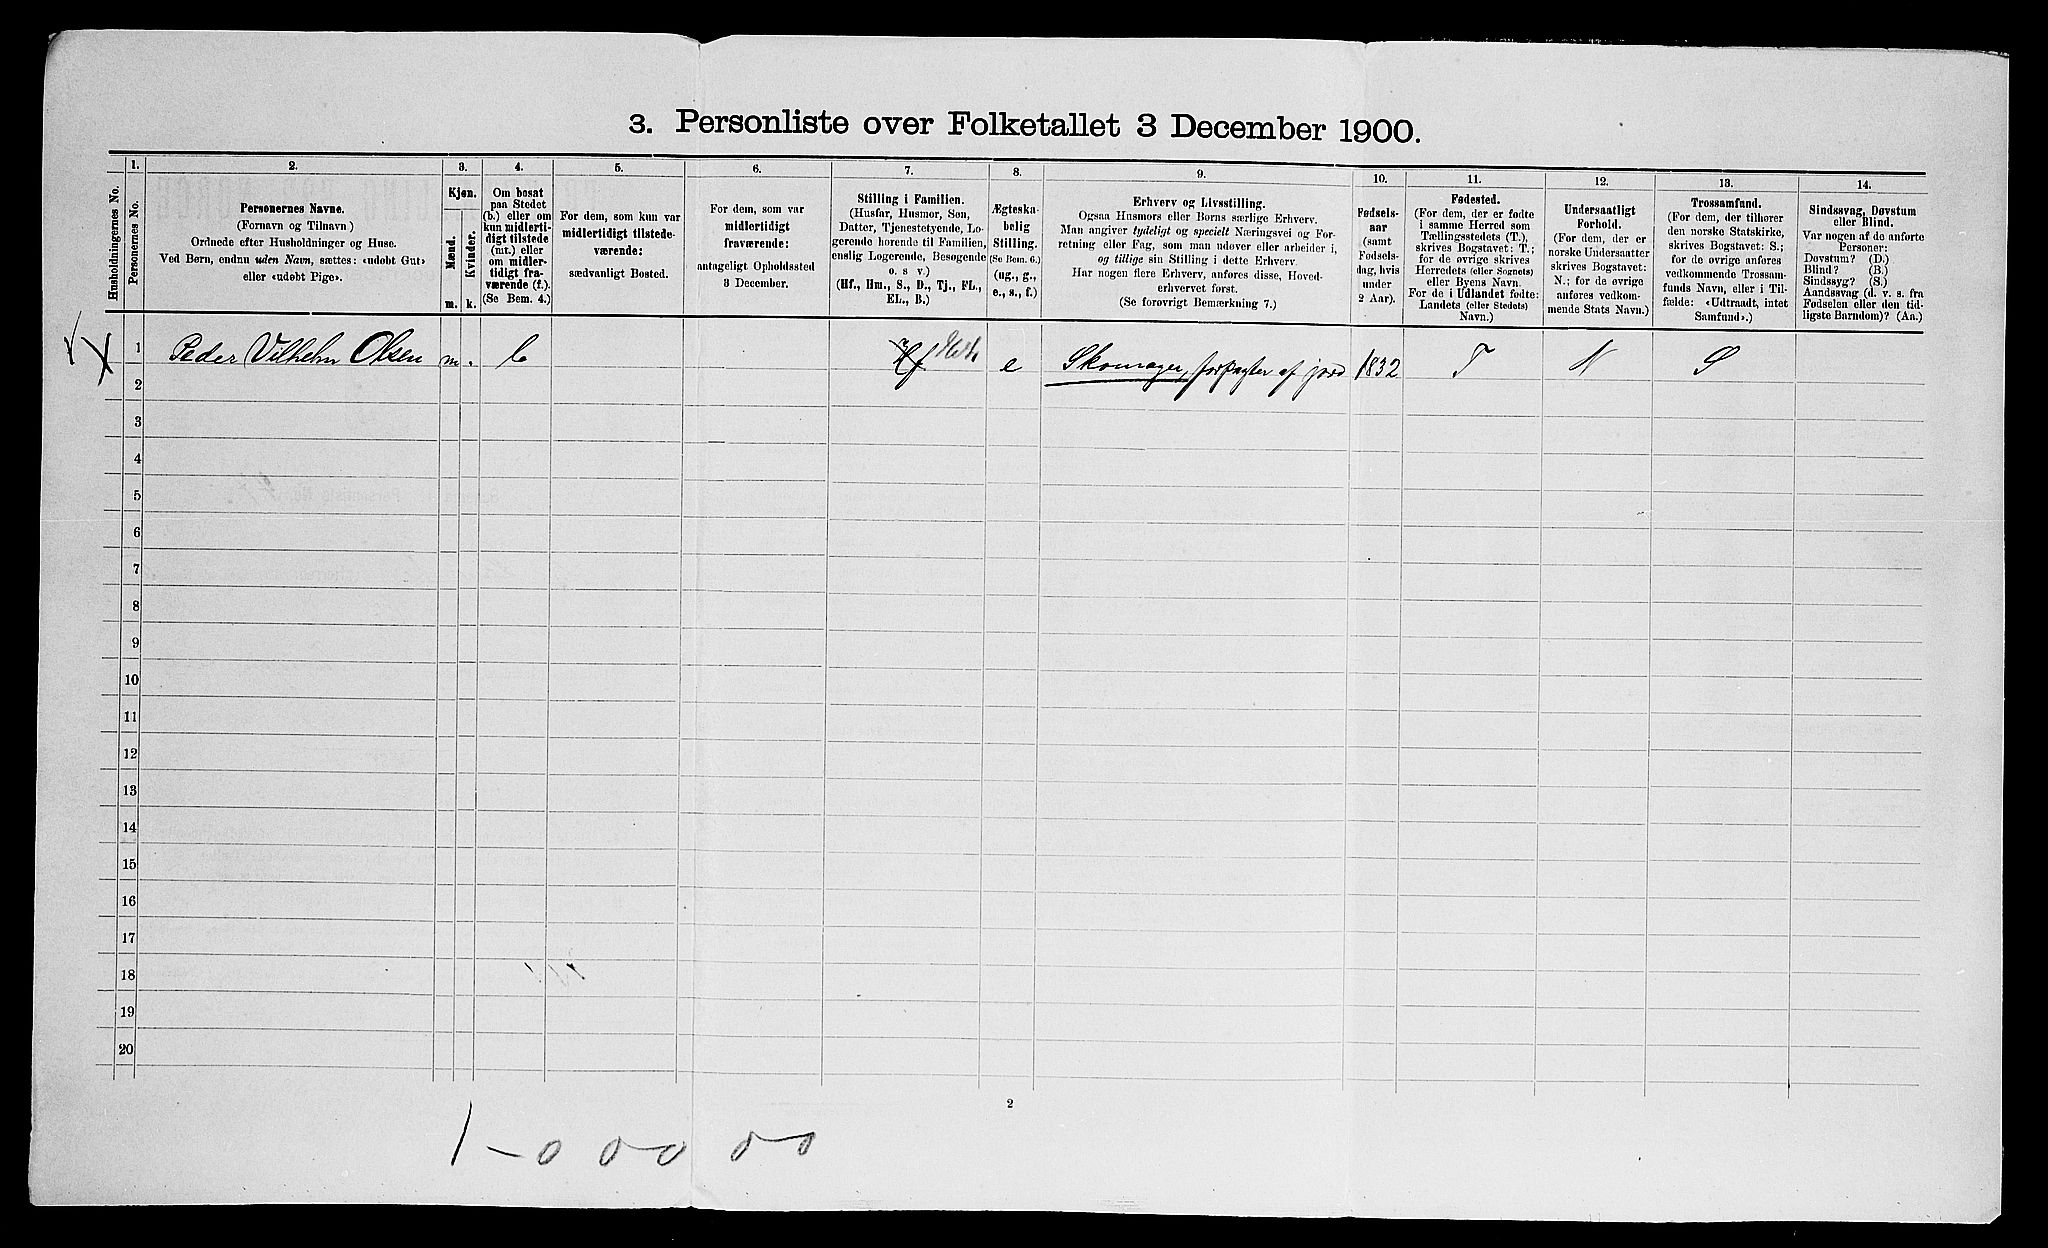 3. Personliste over Folketallet 3 December 1900.
Husholdningernes No.
1.
Personernes No.
2.
Personernes Navne.
(Fornavn og Tilnavn)
Ordnede efter Husholdninger og Huse.
Ved Børn, endnu uden Navn, sættes: «udøbt Gut»
eller «udøbt Pige».
3.
Kjøn.
Mænd.
Kvinder.
m.
k.
4.
Om bosat
paa Stedet
(b.) eller om
kun midlerti-
digt tilstede
(mt.) eller
om midler-
tidigt fra-
værende (f.).
(Se Bem. 4.)
5.
For dem, som kun var
midlertidigt tilstede-
værende:
sædvanligt Bosted.
6.
For dem, som var
midlertidigt
fraværende:
antageligt Opholdssted
3 December.
7.
Stilling i Familien.
(Husfar, Husmor, Søn,
Datter, Tjenestetyende, Lo-
gerende hørende til Familien,
enslig Logerende, Besøgende
o. s v.)
(Hf., Hm., S., D., Tj., FL.,
EL., B.)
8.
Ægteska-
belig
Stilling.
(Se Bem. 6.)
(ug., g.,
e., s., f.)
9.
Erhverv og Livsstilling.
Ogsaa Husmors eller Børns særlige Erhverv.
Man angiver tydeligt og specielt Næringsvei og For-
retning eller Fag, som man udøver eller arbeider i,
og tillige sin Stilling i dette Erhverv.
Har nogen flere Erhverv, anføres disse, Hoved-
erhvervet først.
(Se forøvrigt Bemærkning 7.)
10.
Fødsels-
aar
(samt
Fødsels-
dag, hvis
under
2 Aar).
11.
Fødested.
(For dem, der er fødte
i samme Herred som
Tællingsstedets (T.),
skrives Bogstavet: T.;
for de øvrige skrives
Herredets (eller Sognets)
eller Byens Navn.
For de i Udlandet fødte:
Landets (eller Stedets)
Navn.)
12.
Undersaatligt
Forhold.
(For dem, der er
norske Undersaatter
skrives Bogstavet:
N.; for de øvrige
anføres vedkom-
mende Stats Navn.)
13.
Trossamfund.
(For dem, der tilhører
den norske Statskirke,
skrives Bogstavet: S.;
for de øvrige anføres
vedkommende Trossam-
funds Navn, eller i Til-
fælde: «Udtraadt, intet
Samfund».)
14.
Sindssvag, Døvstum
eller Blind.
Var nogen af de anførte
Personer:
Døvstum? (D.)
Blind? (B.)
Sindssyg? (S.)
Aandssvag (d. v. s. fra
Fødselen eller den tid-
ligste Barndom)? (Aa.)
1 Peder Vilhelm Olsen m. b Hf e Skomager, forpagter af jord 1832 T N S
2
3
4
5
6
7
8
9
10
11
12
13
14
15
16
17
18
19
20
2
1-0 00 00